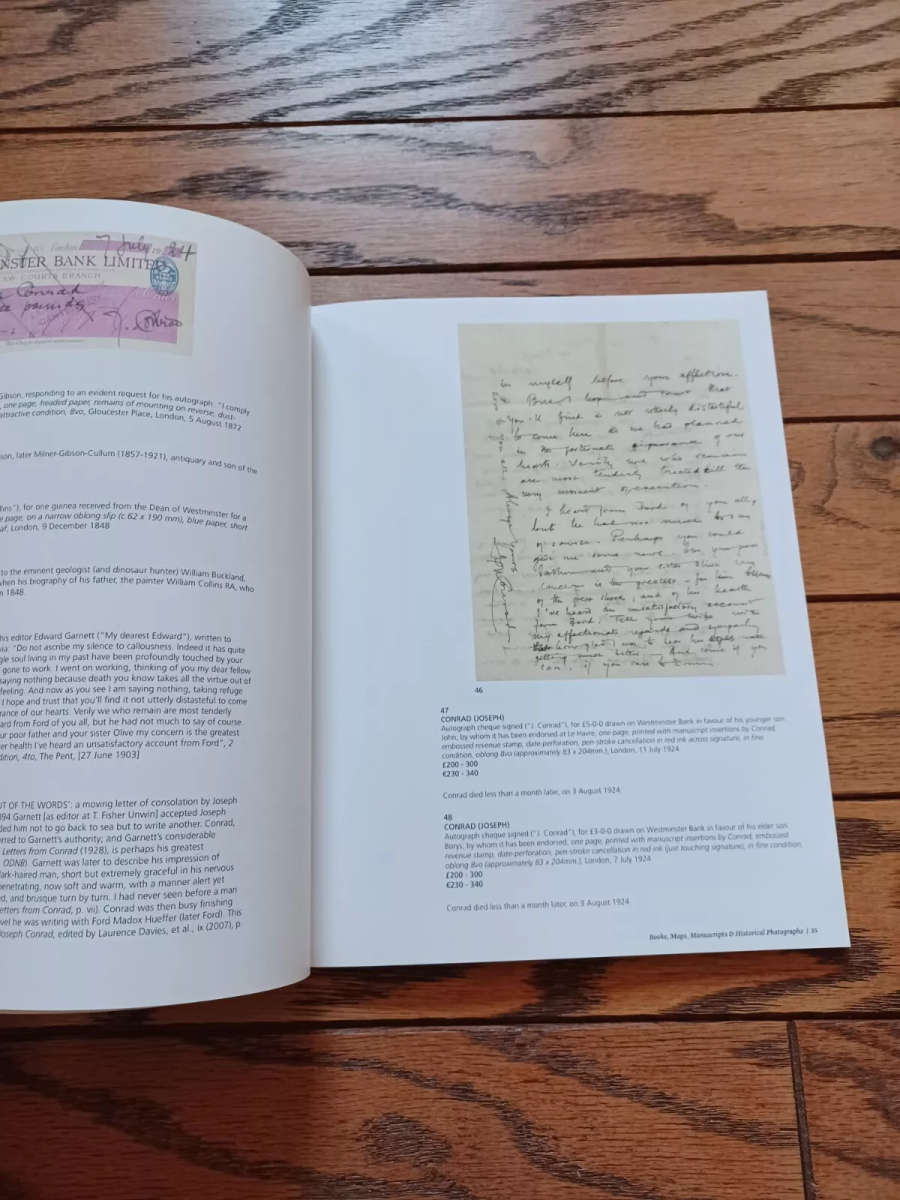 7 July 1924
NSTER BANK LIMITED
LAW COURTS BRANCH
Conrad
pounds
J. Conrad
Gibson, responding to an evident request for his autograph: "I comply
, one page, headed paper, remains of mounting on reverse, dust-
attractive condition, 8vo, Gloucester Place, London, 5 August 1872
son, later Milner-Gibson-Cullum (1857-1921), antiquary and son of the
for one guinea received from the Dean of Westminster for a
page, on a narrow oblong slip (c.62 x 190 mm), blue paper, short
London, 9 December 1848
to the eminent geologist (and dinosaur hunter) William Buckland,
when his biography of his father, the painter William Collins RA, who
1848.
his editor Edward Garnett ("My dearest Edward"), written to
"Do not ascribe my silence to callousness. Indeed it has quite
gle soul living in my past have been profoundly touched by your
gone to work. I went on working, thinking of you my dear fellow
saying nothing because death you know takes all the virtue out of
feeling. And now as you see I am saying nothing, taking refuge
I hope and trust that you'll find it not utterly distasteful to come
rance of our hearts. Verily we who remain are most tenderly
ard from Ford of you all, but he had not much to say of course.
ur poor father and your sister Olive my concern is the greatest
er health I've heard an unsatisfactory account from Ford", 2
dition, 4to, The Pent, [27 June 1903]
UT OF THE WORDS': a moving letter of consolation by Joseph
894 Garnett [as editor at T. Fisher Unwin] accepted Joseph
ded him not to go back to sea but to write another. Conrad,
erred to Garnett's authority; and Garnett's considerable
Letters from Conrad (1928), is perhaps his greatest
ODNB). Garnett was later to describe his impression of
dark-haired man, short but extremely graceful in his nervous
penetrating, now soft and warm, with a manner alert yet
d, and brusque turn by turn. I had never seen before a man
etters from Conrad, p. vii). Conrad was then busy finishing
vel he was writing with Ford Madox Hueffer (later Ford). This
Joseph Conrad, edited by Laurence Davies, et al., ix (2007), p.
in myself before your affection.
I hope and trust that
you'll find it not utterly distasteful
to come here as we had planned
in the fortunate ignorance of our
hearts. Verily we who remain
are most tenderly treated till the
very moment of execution.
I heard from Ford of you all,
but he had not much to say
of course. Perhaps you would
give me some news. For your poor
father and your sister Olive my
concern is the greatest – for him
of the first shock, and of her health
I've heard an unsatisfactory account
from Ford. Tell your wife with
my affectionate regards and sympathy
how glad I was to hear
getting much better. And come if you
can, if you care to come.
Always yours
Conrad
46
47
CONRAD (JOSEPH)
Autograph cheque signed ("J. Conrad"), for £5-0-0 drawn on Westminster Bank in favour of his younger son
John, by whom it has been endorsed at Le Havre, one page, printed with manuscript insertions by Conrad,
embossed revenue stamp, date-perforation, pen-stroke cancellation in red ink across signature, in fine
condition, oblong 8vo (approximately 83 x 204mm.), London, 11 July 1924
£200 - 300
€230 - 340
Conrad died less than a month later, on 3 August 1924.
48
CONRAD (JOSEPH)
Autograph cheque signed ("J. Conrad"), for £3-0-0 drawn on Westminster Bank in favour of his elder son
Borys, by whom it has been endorsed, one page, printed with manuscript insertions by Conrad, embossed
revenue stamp, date-perforation, pen-stroke cancellation in red ink (just touching signature), in fine condition,
oblong 8vo (approximately 83 x 204mm.), London, 7 July 1924
£200 - 300
€230 - 340
Conrad died less than a month later, on 3 August 1924.
Books, Maps, Manuscripts & Historical Photographs | 35